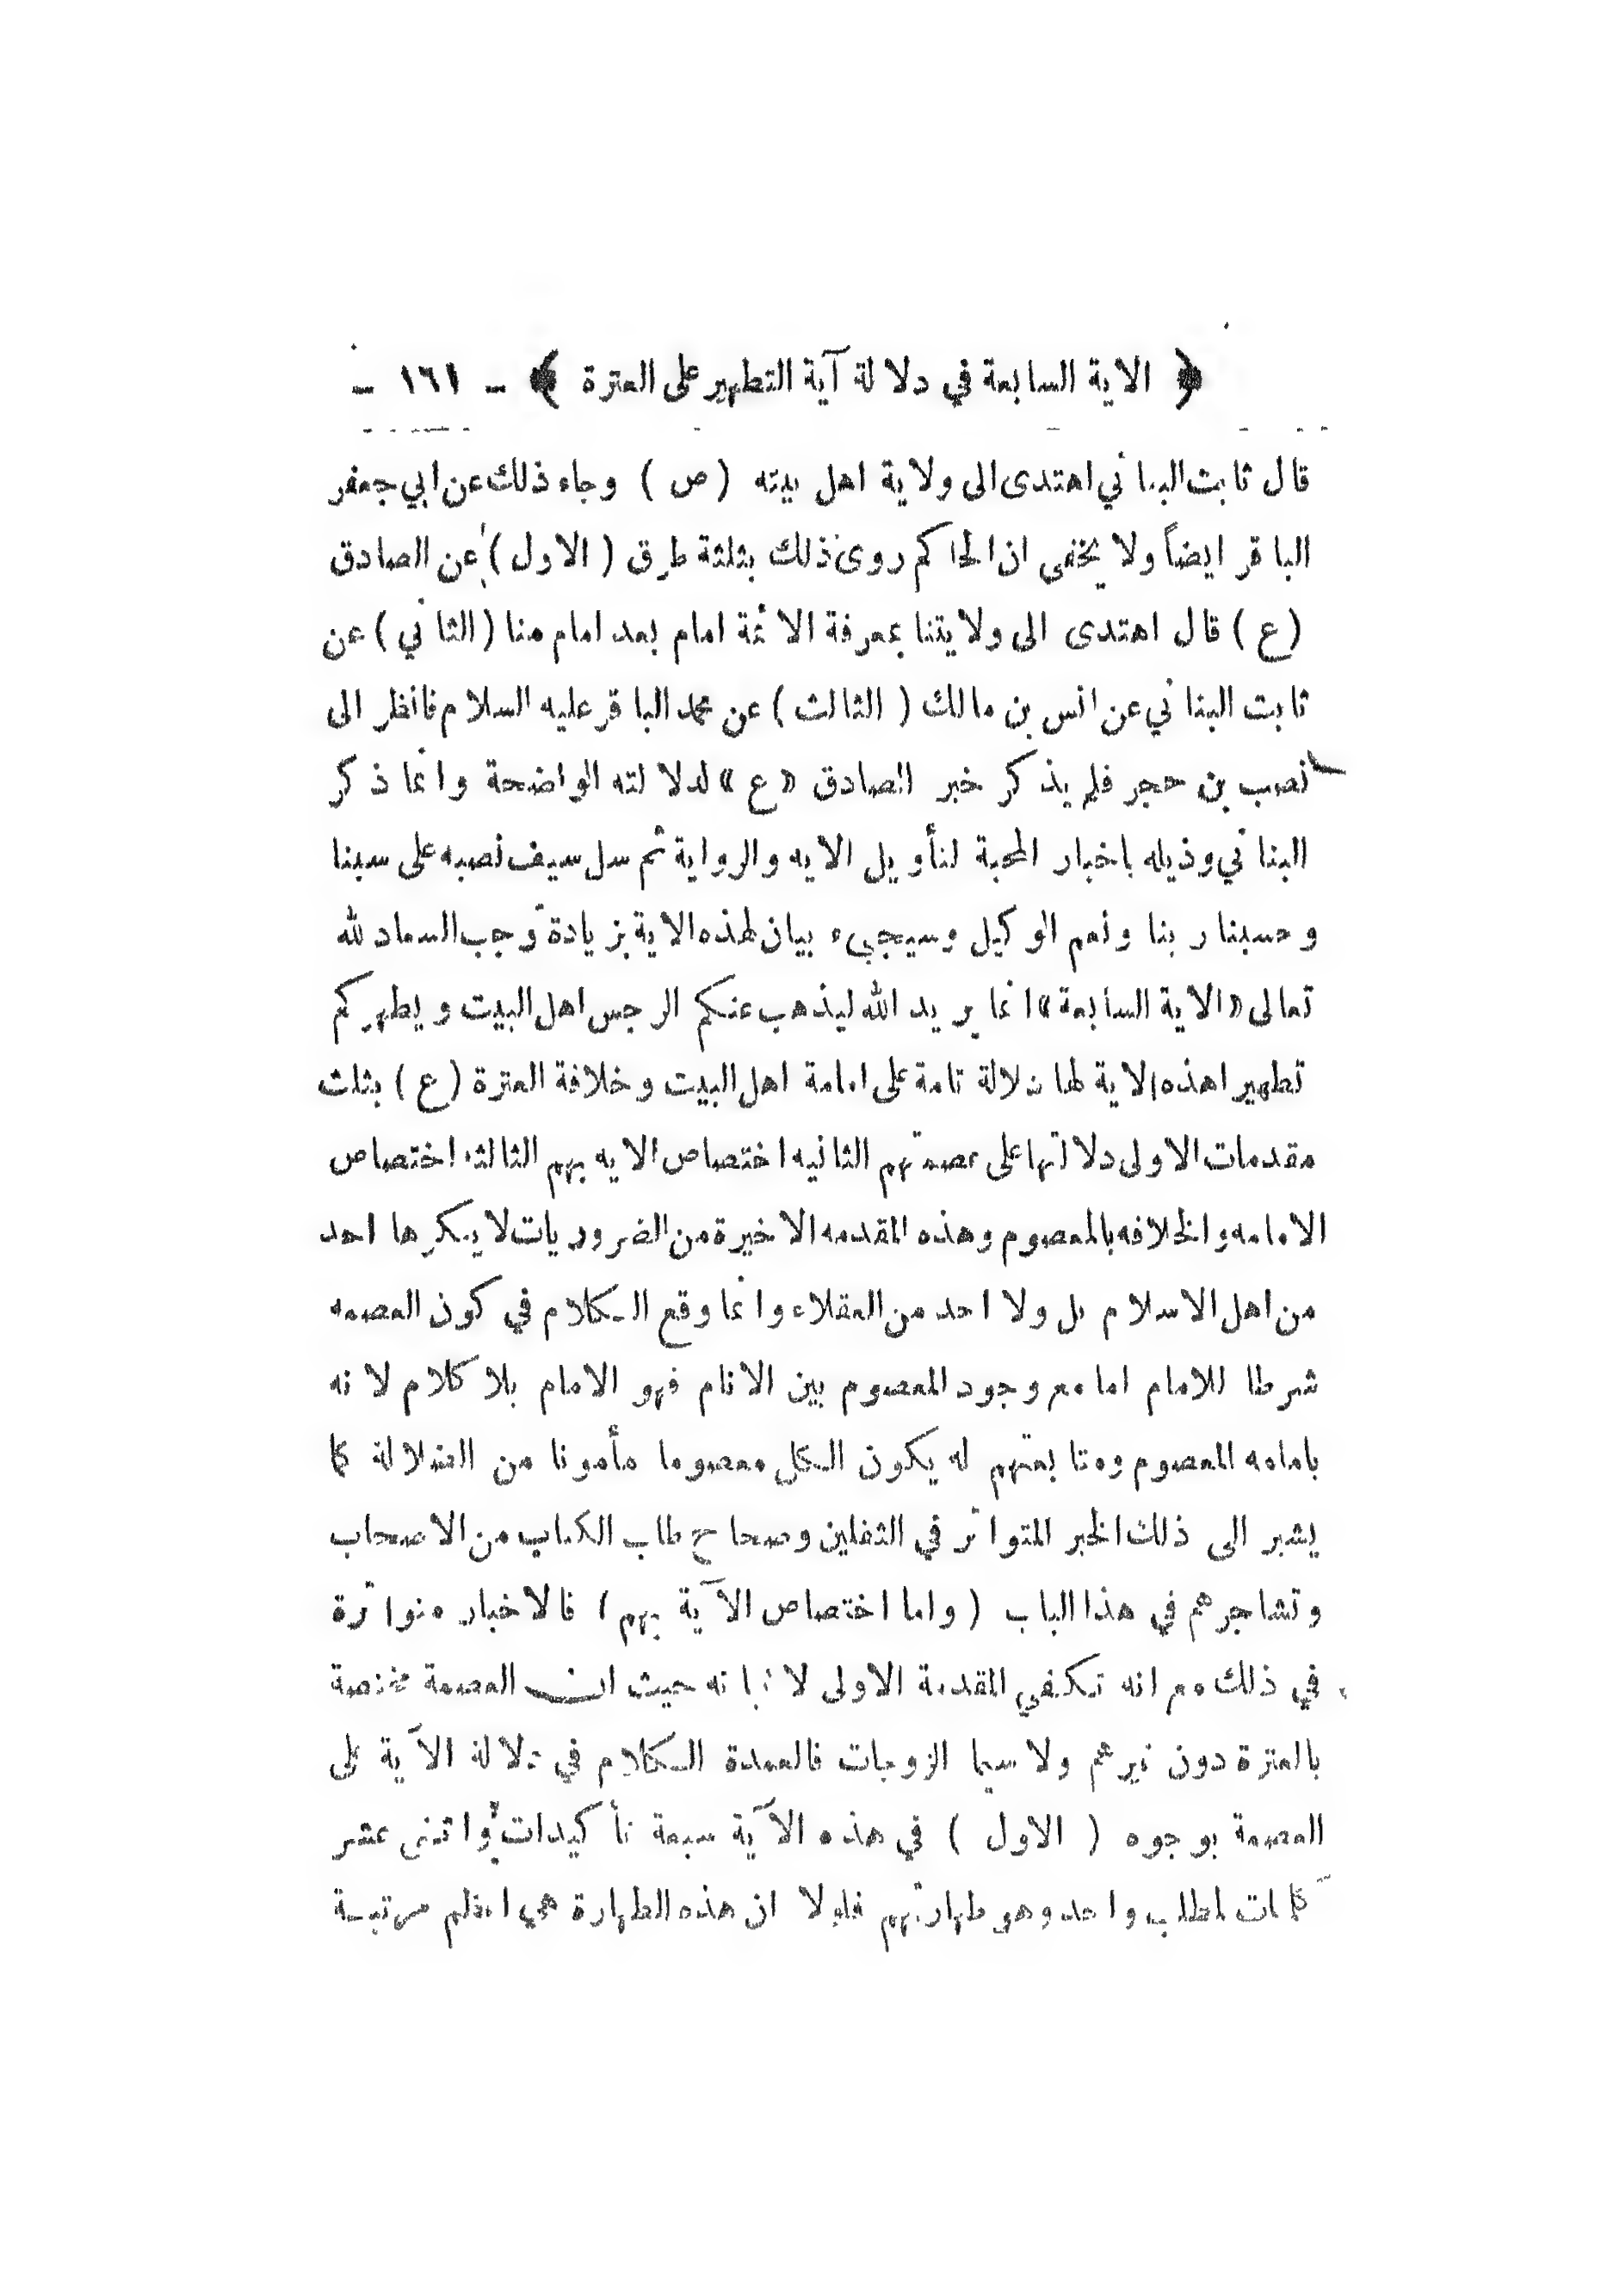 ﴿ الاية السابعة في دلالة آية التطهير على العترة ﴾ ـ ١٦١ ـ
قال ثابت البناني اهتدى الى ولاية اهل بيته ( ص ) وجاء ذلك عن ابي جعفر
الباقر ايضاً ولا يخفى ان الحاكم روى ذلك بثلثة طرق ( الاول ) عن الصادق
( ع ) قال اهتدى الى ولايتنا بمعرفة الائمة امام بعد امام منا ( الثاني ) عن
ثابت البناني عن انس بن مالك ( الثالث ) عن محمد الباقر عليه السلام فانظر الى
نصب بن حجر فلم يذكر خبر الصادق «ع» لدلالته الواضحة وانما ذكر
البناني وذيله باخبار المحبة لتأويل الايه والرواية ثم سل سيف نصبه على سبنا
وحسبنا ربنا ونعم الوكيل وسيجيء بيان لهذه الاية بزيادة توجب السداد لله
تعالى «الاية السابعة» انما يريد الله ليذهب عنكم الرجس اهل البيت ويطهركم
تطهيرا هذه الاية لها دلالة تامة على امامة اهل البيت وخلافة العترة ( ع ) بثلث
مقدمات الاولى دلالتها على عصمتهم الثانيه اختصاص الايه بهم الثالثه اختصاص
الامامه والخلافه بالمعصوم وهذه المقدمه الاخيرة من الضروريات لا ينكرها احد
من اهل الاسلام بل ولا احد من العقلاء وانما وقع الكلام في كون العصمه
شرطا للامام اما مع وجود المعصوم بين الانام فهو الامام بلا كلام لانه
بامامه المعصوم ومتابعتهم له يكون الكل معصوما مأمونا من الضلالة كما
يشير الى ذلك الخبر المتواتر في الثقلين وصحاح طاب الكتاب من الاصحاب
وتشاجرهم في هذا الباب ( واما اختصاص الآية بهم ) فالاخبار متواترة
في ذلك مع انه تكفي المقدمة الاولى لاثباته حيث ان العصمة مختصة
بالعترة دون غيرهم ولا سيما الزوجات فالعمدة الكلام في دلالة الآية على
العصمة بوجوه ( الاول ) في هذه الآية سبعة تأكيدات واثنى عشر
كلمات لمطلب واحد وهي طهارتهم فلولا ان هذه الطهارة هي اعظم مرتبة